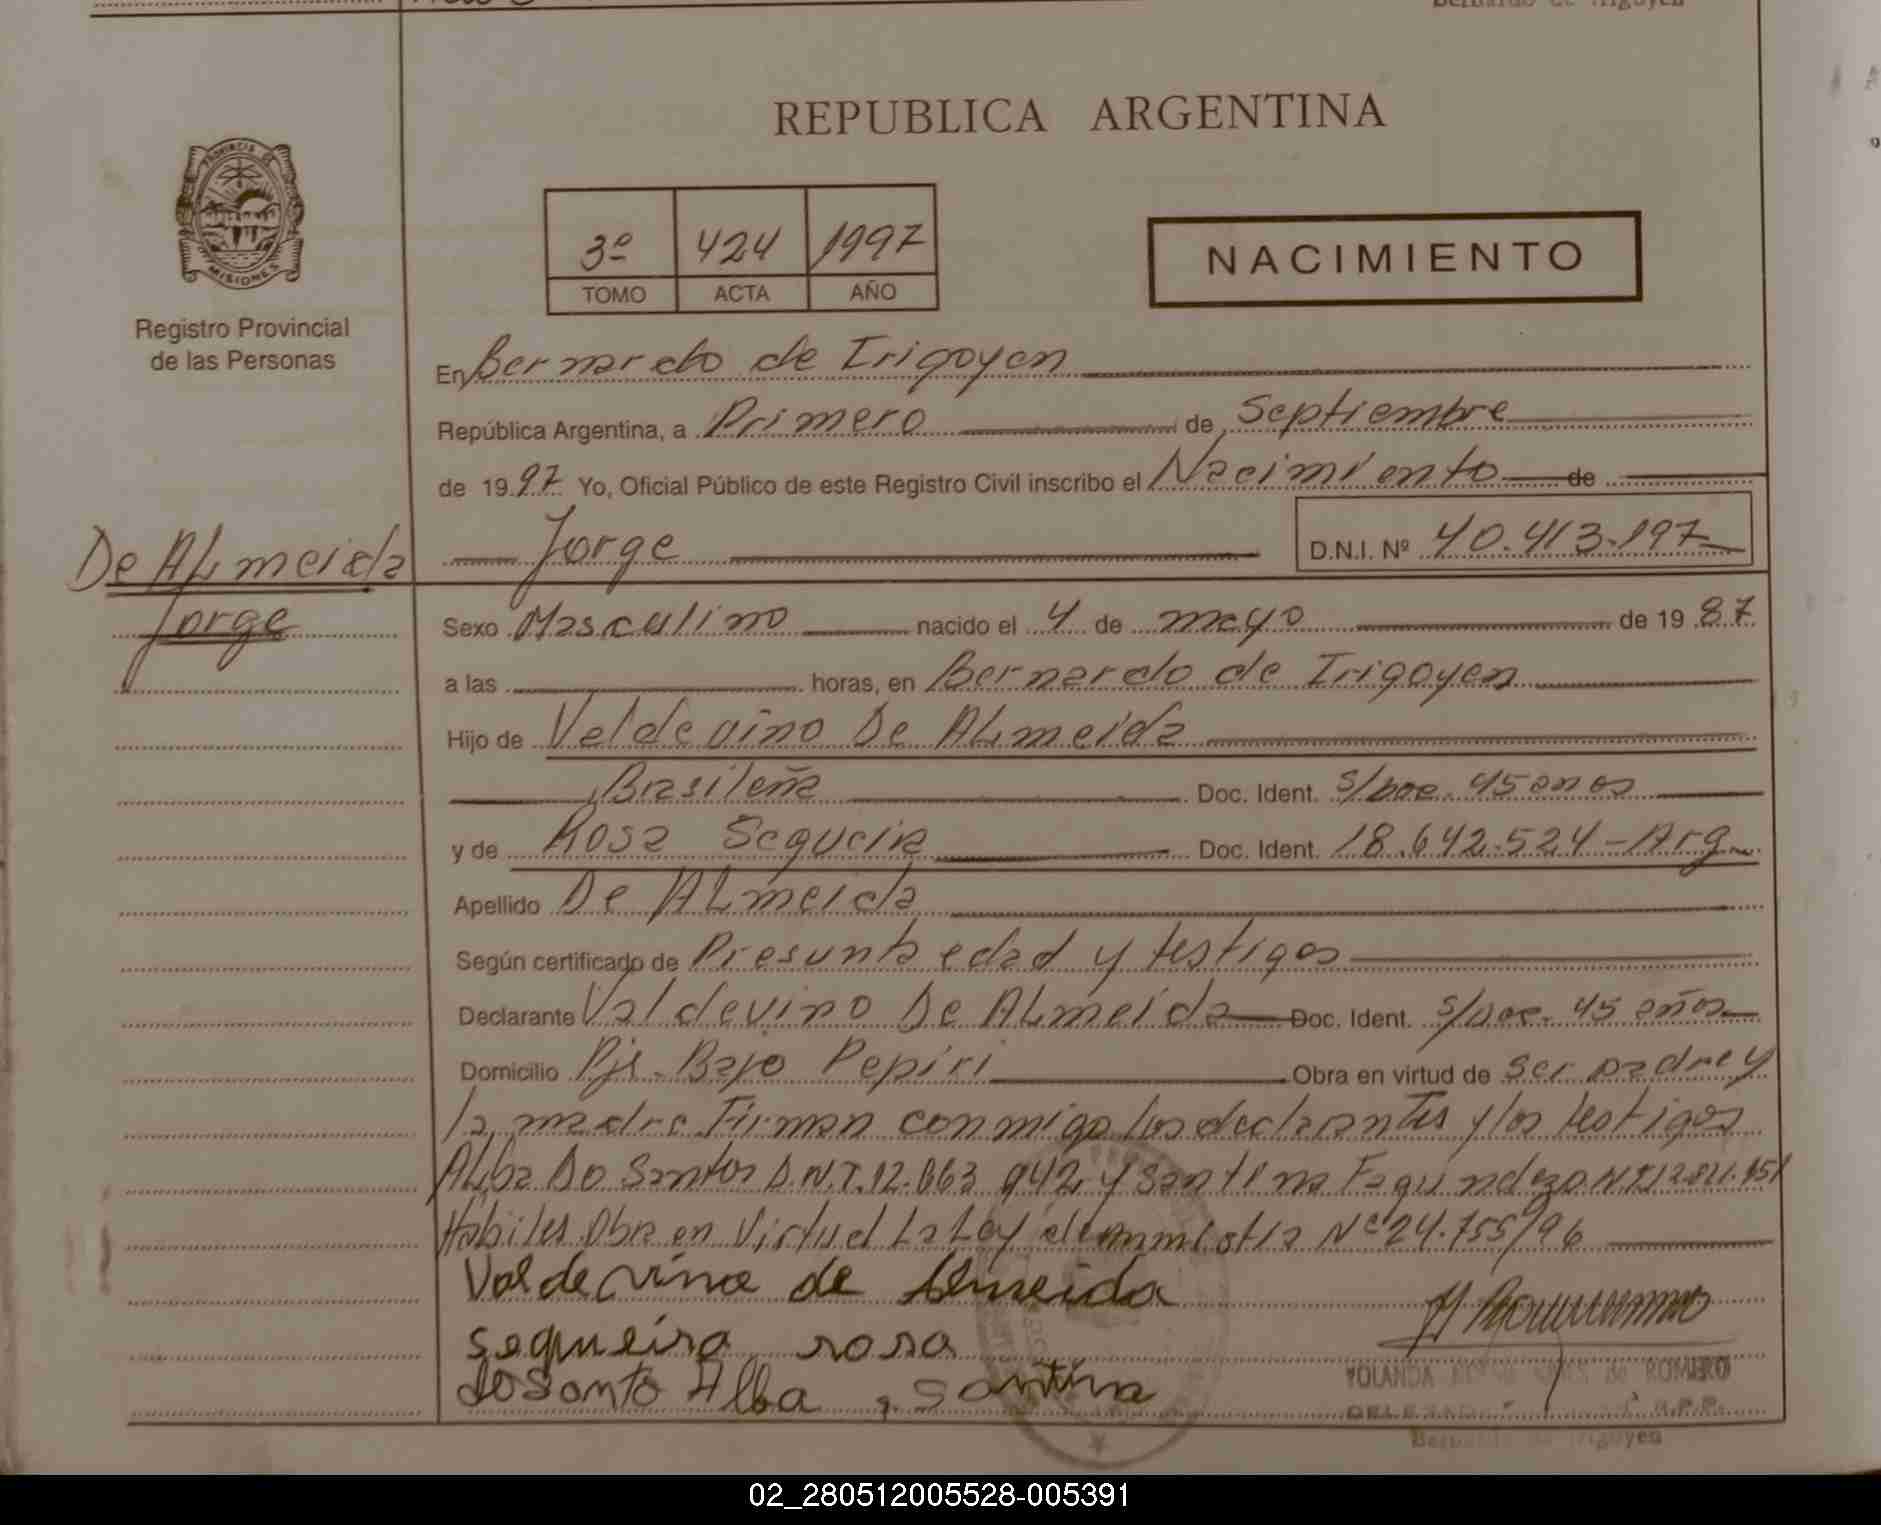 REPUBLICA ARGENTINA
PROVINCIA DE
MISIONES
Registro Provincial
de las Personas
3º 424 1997
TOMO ACTA AÑO
NACIMIENTO
En Bernardo de Irigoyen
República Argentina, a Primero de Septiembre
de 1997 Yo, Oficial Público de este Registro Civil inscribo el Nacimiento de
Jorge D.N.I. Nº 40.413.197
De ALmeida
Jorge
Sexo Masculino nacido el 4 de mayo de 1987
a las horas, en Bernardo de Irigoyen
Hijo de Valdevino De ALmeida
Brasileña Doc. Ident. s/Doc. 45 anos
y de Rosa Segueira Doc. Ident. 18.642.524-Arg.
Apellido De ALmeida
Según certificado de Presunta edad y testigos
Declarante Valdevino De ALmeida Doc. Ident. s/Doc. 45 años
Domicilio Pje. Bajo Pepiri Obra en virtud de ser padre y
la madre Firman conmigo los declarantes y los testigos
ALba Do Santos D.N.I.12.663.942 y Santina Fagundez D.N.I.
Habiles. Obra en Virtud La Ley de amnistia Nº 24.755/96
Valdevino de Almeida
sequeira rosa
do Santo Alba, Santina
YOLANDA de ROMERO
R.P.P.
Bernardo de Irigoyen
02_280512005528-005391